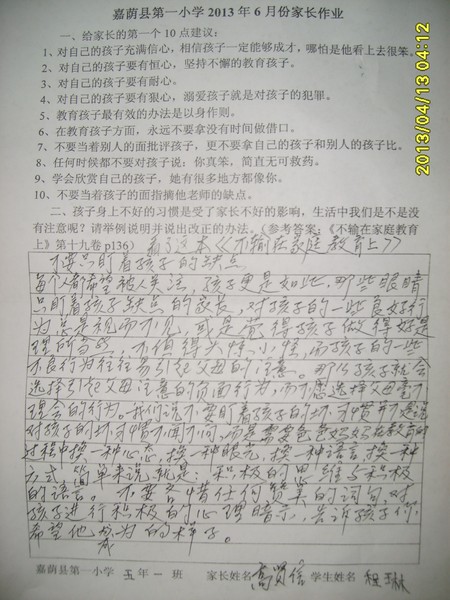 嘉荫县第一小学2013年6月份家长作业
一、给家长的第一个10点建议：
1、对自己的孩子充满信心，相信孩子一定能够成才，哪怕是他看上去很笨。
2、对自己的孩子要有恒心，坚持不懈的教育孩子。
3、对自己的孩子要有耐心。
4、对自己的孩子要有狠心，溺爱孩子就是对孩子的犯罪。
5、教育孩子最有效的办法是以身作则。
6、在教育孩子方面，永远不要拿没有时间做借口。
7、不要当着别人的面批评孩子，更不要拿自己的孩子和别人的孩子比。
8、任何时候都不要对孩子说：你真笨，简直无可救药。
9、学会欣赏自己的孩子，她有很多地方都像你。
10、不要当着孩子的面指摘他老师的缺点。
二、孩子身上不好的习惯是受了家长不好的影响，生活中我们是不是没
有注意呢？请举例说明并说出改正的办法。（参考答案：《不输在家庭教育
上》第十九卷 p136） 看了这本《不输在家庭教育上》
不要只盯着孩子的缺点
每个人都希望被人关注，孩子更是如此，那些眼睛
只盯着孩子缺点的家长，对孩子的一些良好行
为总是视而不见，或是觉得孩子做得好是
理所当然，不值得大惊小怪，而孩子的一些
不良行为往往易引起父母的注意。那么孩子就会
选择引起父母注意的负面行为，而不愿选择父母毫不
理会的行为。我们说不要盯着孩子的坏习惯并不是说
对孩子的坏习惯不闻不问，而是需要爸爸妈妈在教育的
过程中换一种心态，换一种眼光，换一种语言，换一种
方式。简单来说就是：积极的思维与积极
的语言。不要吝惜任何赞美的词句，对
孩子进行积极的心理暗示，告诉孩子你
希望他成为的样子。
嘉荫县第一小学 五年一班 家长姓名 高贤信 学生姓名 程琳
2013/04/13 04:12